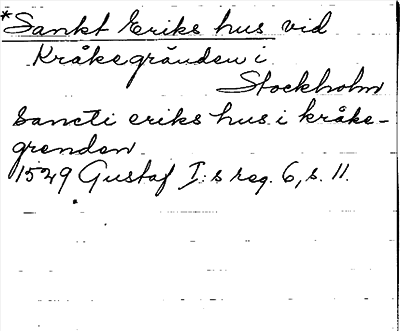 *Sankt Eriks hus vid
Kråkegränden i
Stockholm
Sancti eriks hus i kråke-
grenden
1529 Gustaf I:s reg. 6, s. 11.